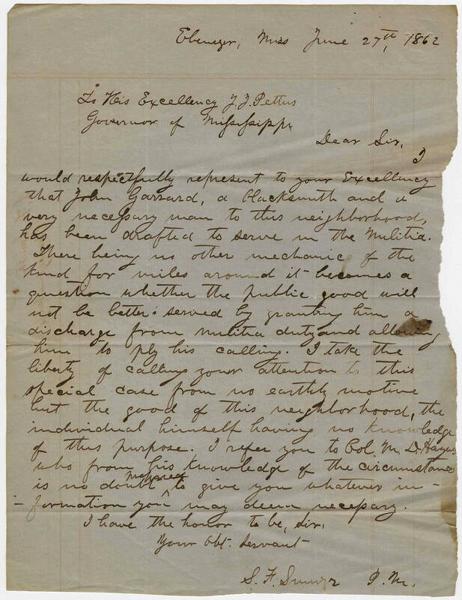 Ebenezer, Miss June 27th, 1862
To His Excellency J. J. Pettus
Governor of Mississippi
Dear Sir,
I
would respectfully represent to your Excellency
that John Garrard, a blacksmith and a
very necessary man to this neighborhood,
has been drafted to serve in the Militia.
There being no other mechanic of the
kind for miles around it becomes a
question whether the public good will
not be better served by granting him a
discharge from militia duty and allowing
him to ply his calling. I take the
liberty of calling your attention to this
special case from no earthly motive
but the good of this neighborhood, the
individual himself having no knowledge
of this purpose. I refer you to Col. M. D.
who from his knowledge of the circumstances
is no doubt prepared to give you whatever in-
formation you may deem necessary.
I have the honor to be, sir,
Your Obt. Servant
S. F. P. M.